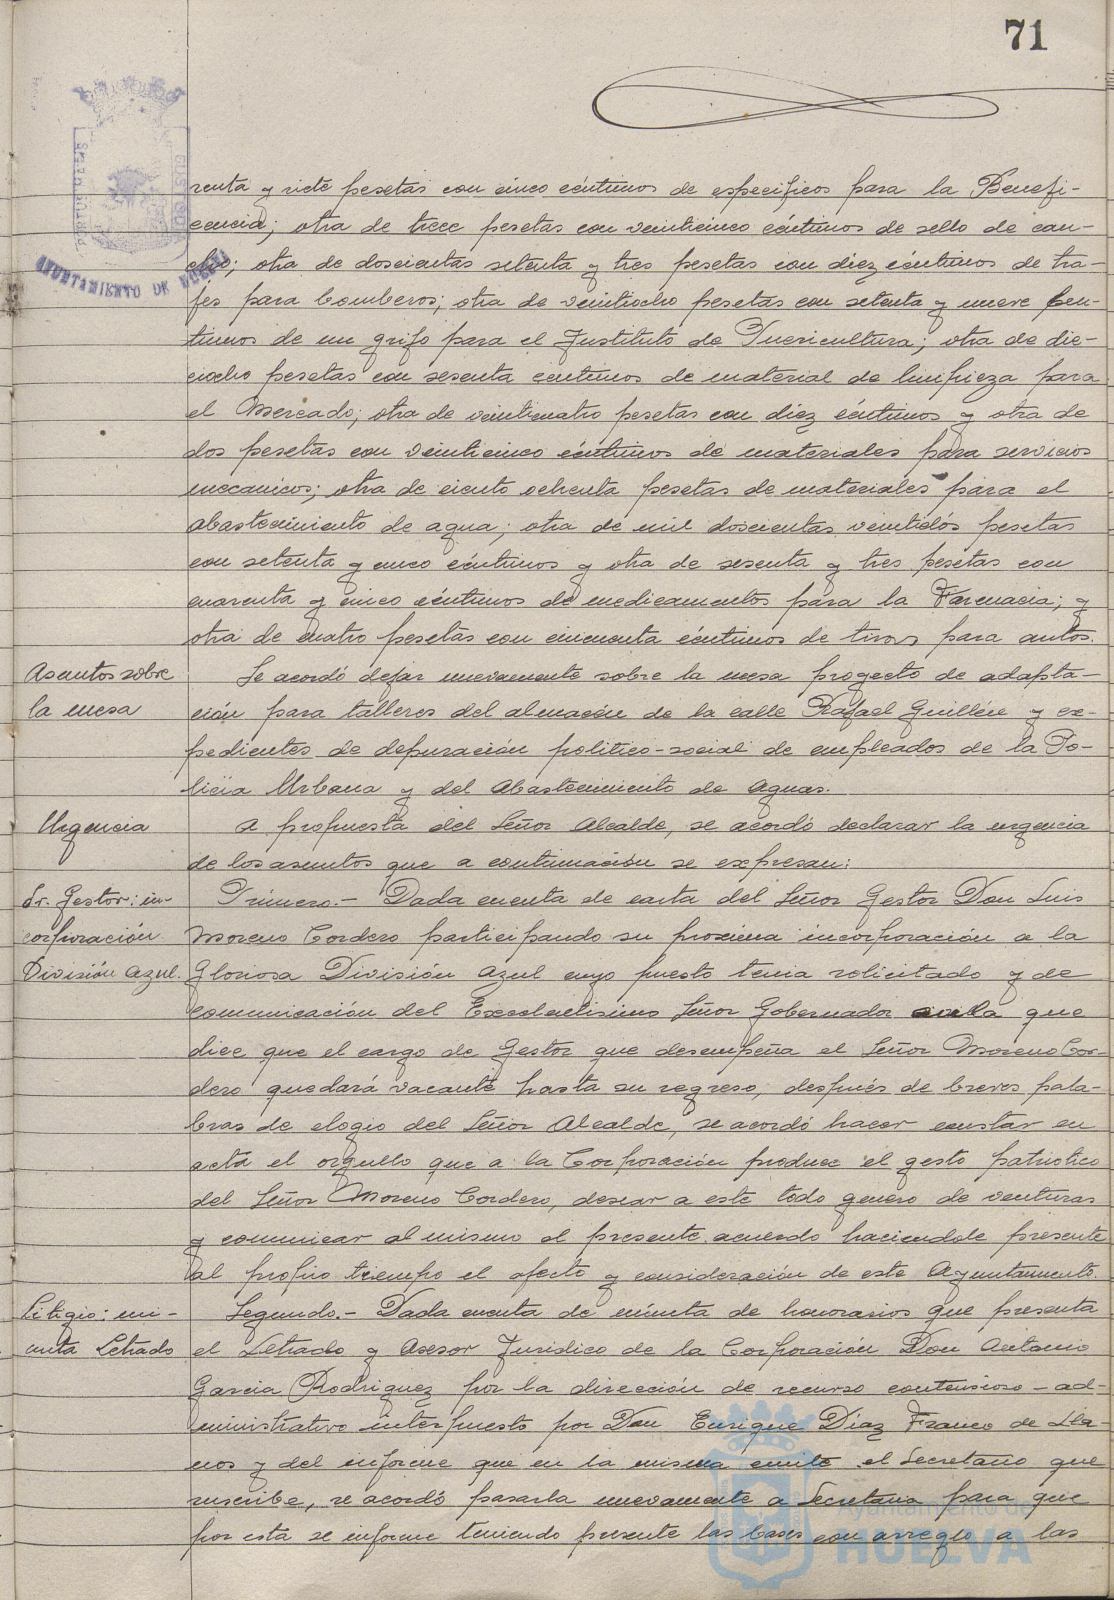 71
renta y siete pesetas con cinco céntimos de especificos para la Benefi-
cencia; otra de trece pesetas con veinticinco céntimos de sello de cau-
cho; otra de doscientas setenta y tres pesetas con diez céntimos de tra-
jes para bomberos; otra de veintiocho pesetas con setenta y nueve cen-
timos de un grifo para el Instituto de Puericultura; otra de die-
ciocho pesetas con sesenta centimos de material de limpieza para
el Mercado; otra de veinticuatro pesetas con diez céntimos y otra de
dos pesetas con veinticinco céntimos de materiales para servicios
mecanicos; otra de ciento ochenta pesetas de materiales para el
abastecimiento de agua; otra de mil doscientas veintidós pesetas
con setenta y cinco céntimos y otra de sesenta y tres pesetas con
cuarenta y cinco céntimos de medicamentos para la Farmacia; y
otra de cuatro pesetas con cincuenta céntimos de tiras para autos.
Asuntos sobre
la mesa
Se acordó dejar nuevamente sobre la mesa proyecto de adapta-
ción para talleres del almacén de la calle Rafael Guillén y ex-
pedientes de depuración politico-social de empleados de la Po-
licia Urbana y del Abastecimiento de Aguas.
Urgencia
A propuesta del Señor Alcalde, se acordó declarar la urgencia
de los asuntos que a continuación se expresan:
Sr. Gestor: in-
corporación
División Azul.
Primero.- Dada cuenta de carta del Señor Gestor Don Luis
Moreno Cordero participando su proxima incorporación a la
Gloriosa División Azul cuyo puesto tenia solicitado y de
comunicación del Excelentisimo Señor Gobernador en la que
dice que el cargo de Gestor que desempeña el Señor Moreno Cor-
dero quedará vacante hasta su regreso, después de breves pala-
bras de elogio del Señor Alcalde, se acordó hacer constar en
acta el orgullo que a la Corporación produce el gesto patriotico
del Señor Moreno Cordero, desear a este todo genero de venturas
y comunicar al mismo el presente acuerdo haciendole presente
al propio tiempo el afecto y consideración de este Ayuntamiento.
Litigio: mi-
nuta Letrado
Segundo.- Dada cuenta de minuta de honorarios que presenta
el Letrado y Asesor Juridico de la Corporación Don Antonio
Garcia Rodriguez por la dirección de recurso contencioso-ad-
ministrativo interpuesto por Don Enrique Díaz Franco de Lla-
nos y del informe que en la misma emite el Secretario que
suscribe, se acordó pasarla nuevamente a Secretaria para que
por esta se informe teniendo presente las bases con arreglo a las
AYUNTAMIENTO DE HUELVA
Ayuntamiento de
HUELVA